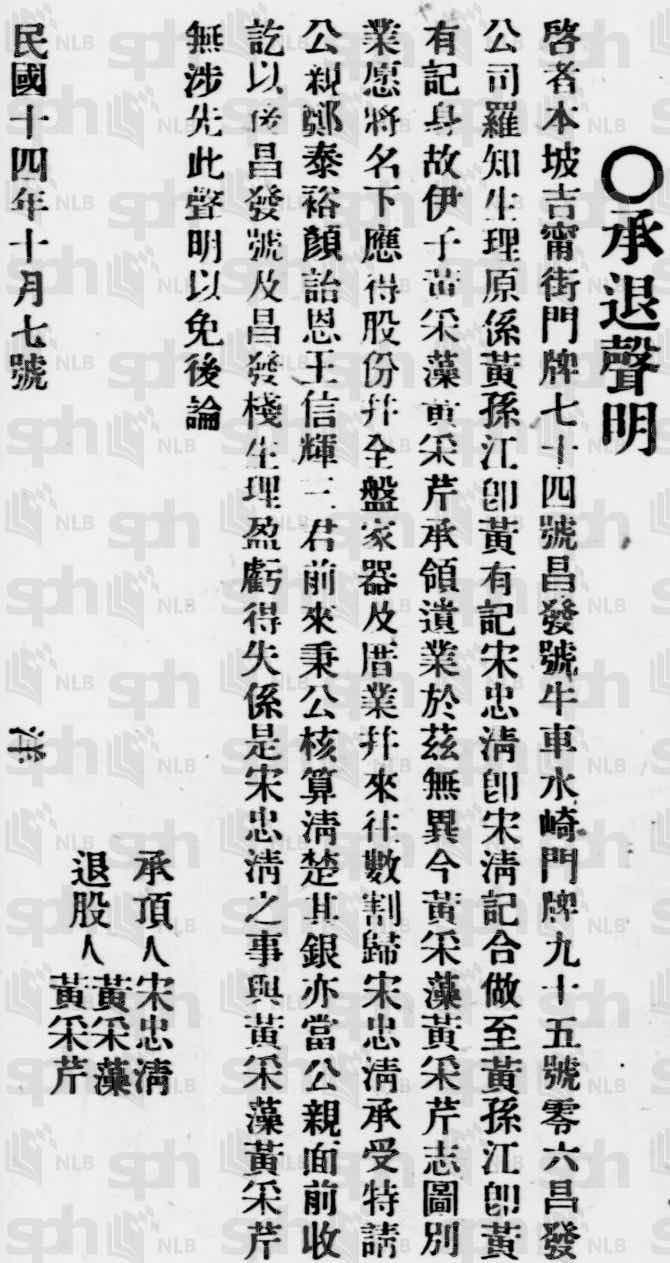 ○承退聲明
啓者本坡吉甯街門牌七十四號昌發號牛車水崎門牌九十五號零六昌發
公司羅知生理原係黃孫江卽黃有記宋忠淸卽宋淸記合做至黃孫江卽黃
有記身故伊子黃采藻黃采芹承領遺業於茲無異今黃采藻黃采芹志圖別
業愿將名下應得股份幷全盤家器及厝業幷來往數割歸宋忠淸承受特請
公親鄭泰裕顏詒恩王信輝三君前來秉公核算淸楚其銀亦當公親面前收
訖以後昌發號及昌發棧生理盈虧得失係是宋忠淸之事與黃采藻黃采芹
無涉先此聲明以免後論
承頂人宋忠淸
退股人黃采藻
黃采芹
民國十四年十月七號
洋
sph NLB